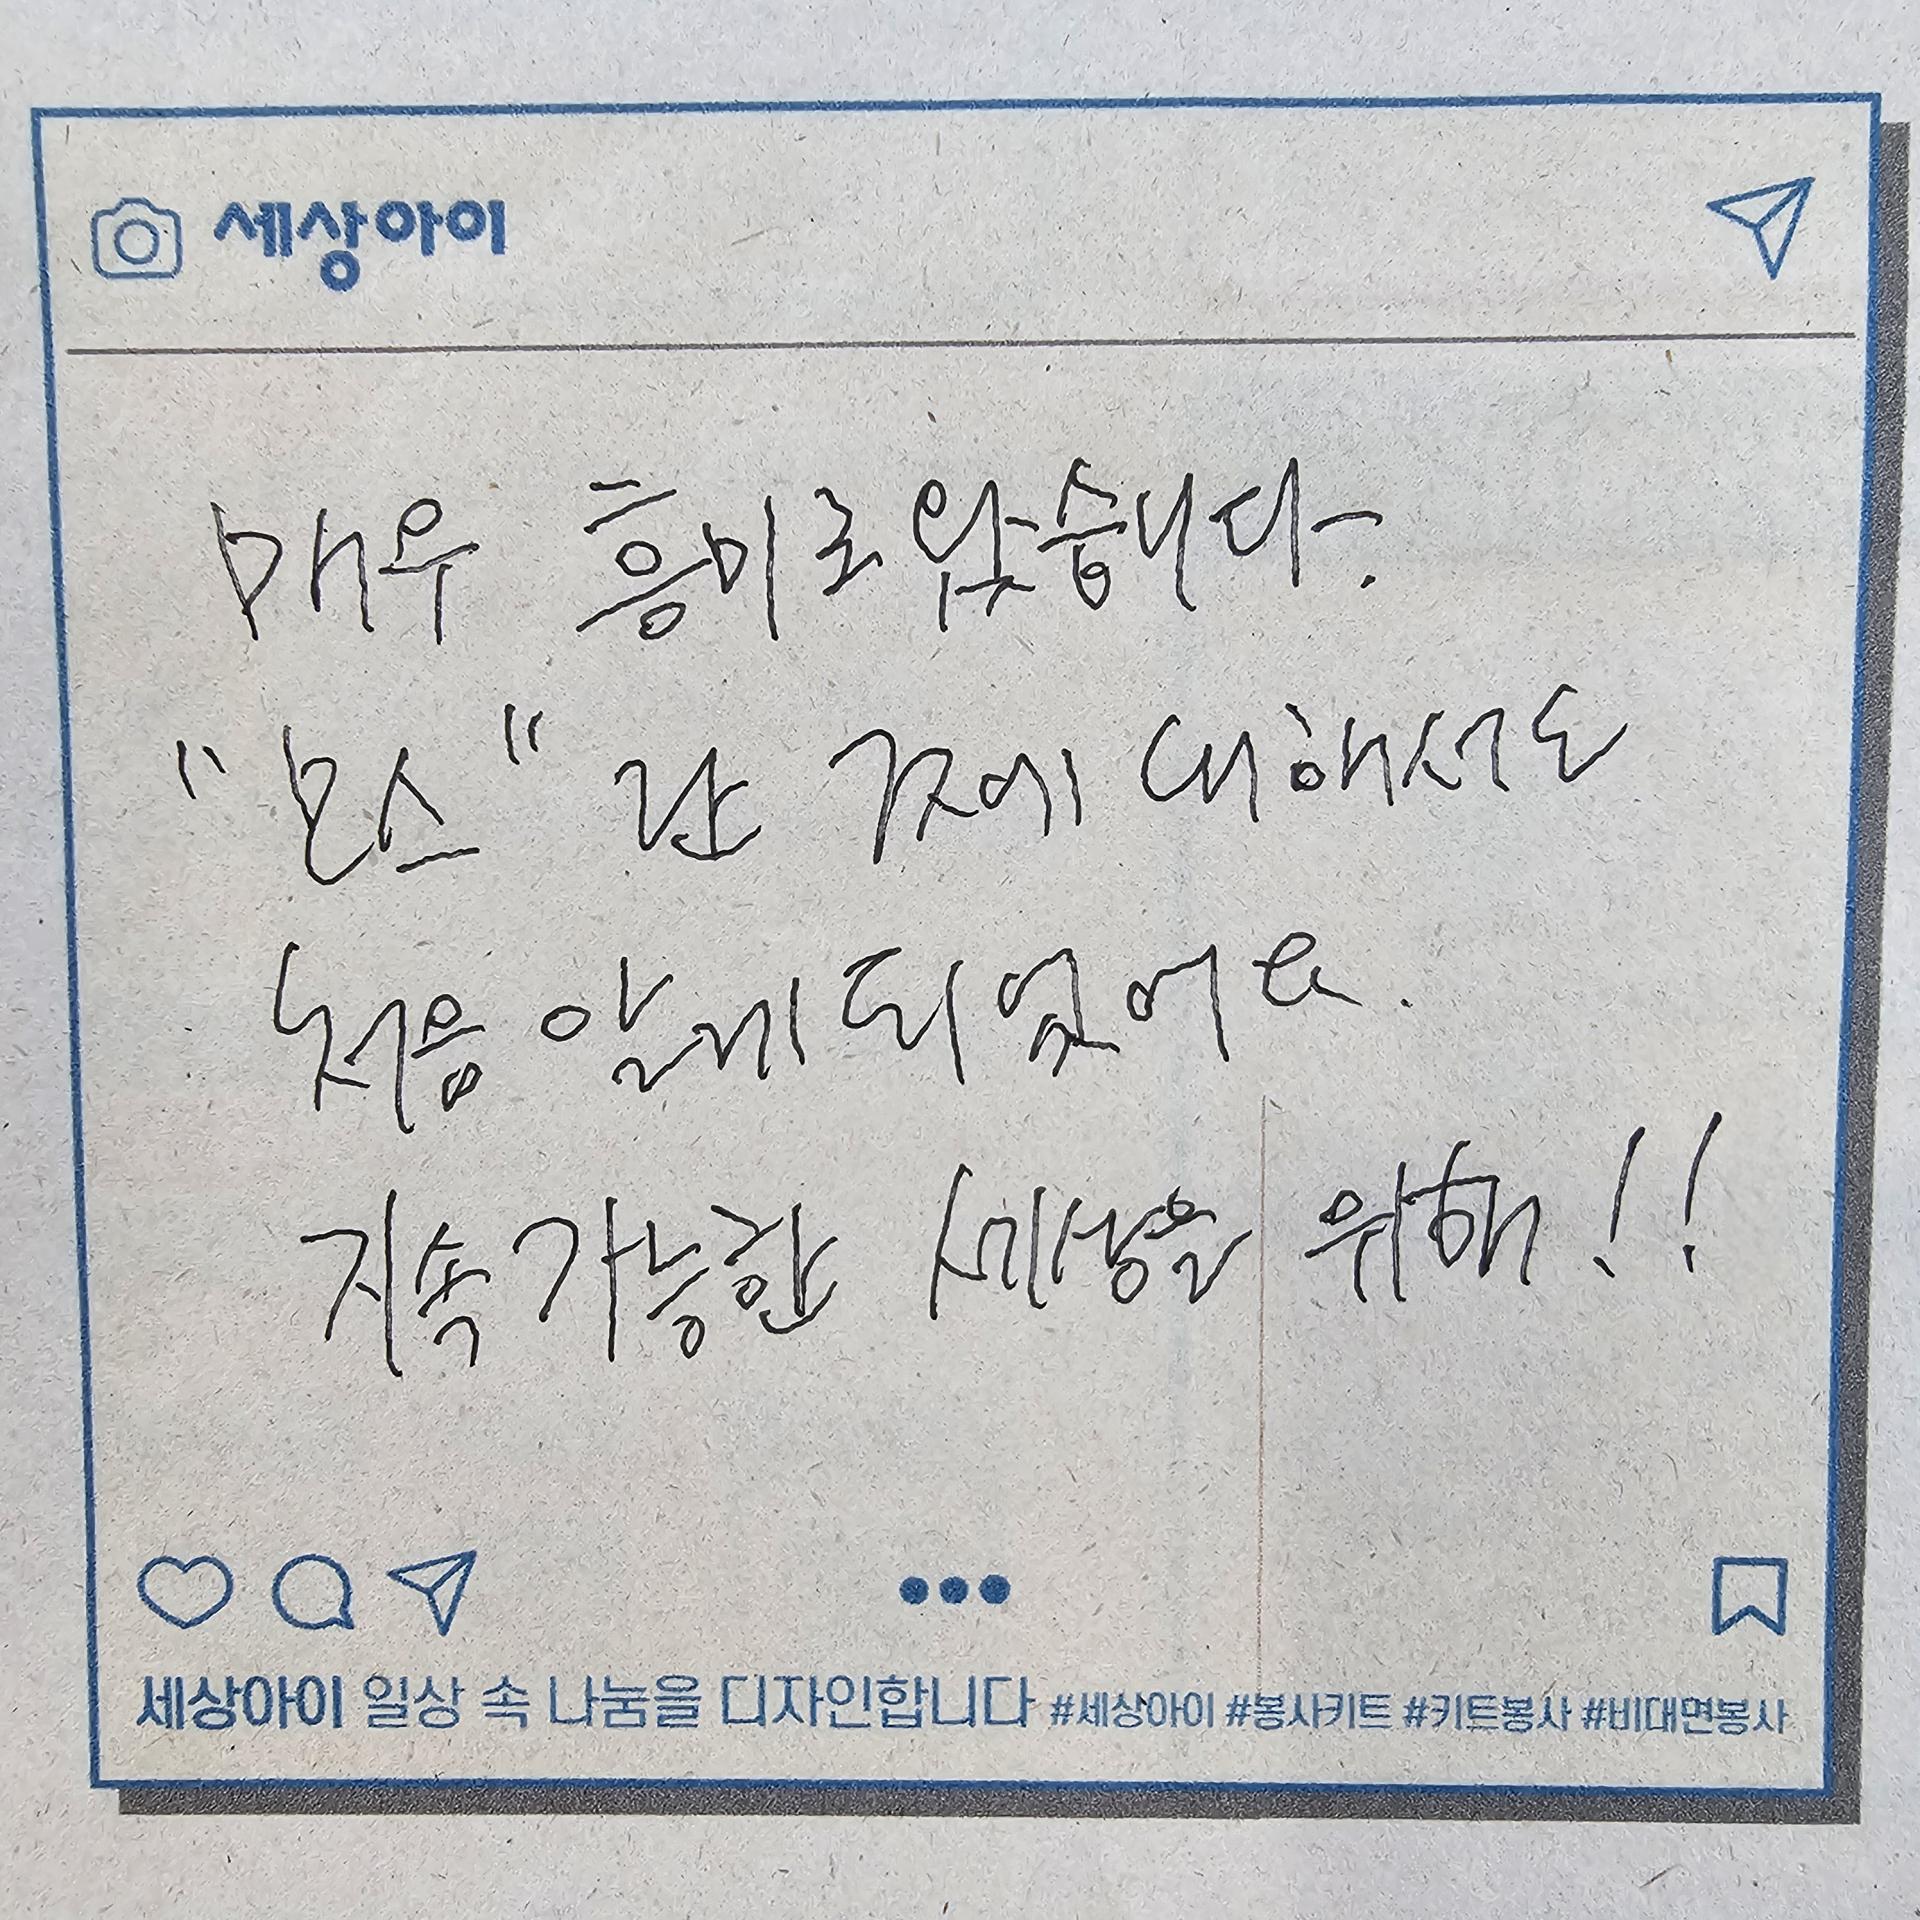 세상아이
매우 흥미로웠습니다~.
"모스" 란 것에 대해서도
처음 알게 되었어요.
지속가능한 세상을 위해!!
세상아이 일상 속 나눔을 디자인합니다 #세상아이 #봉사키트 #키트봉사 #비대면봉사